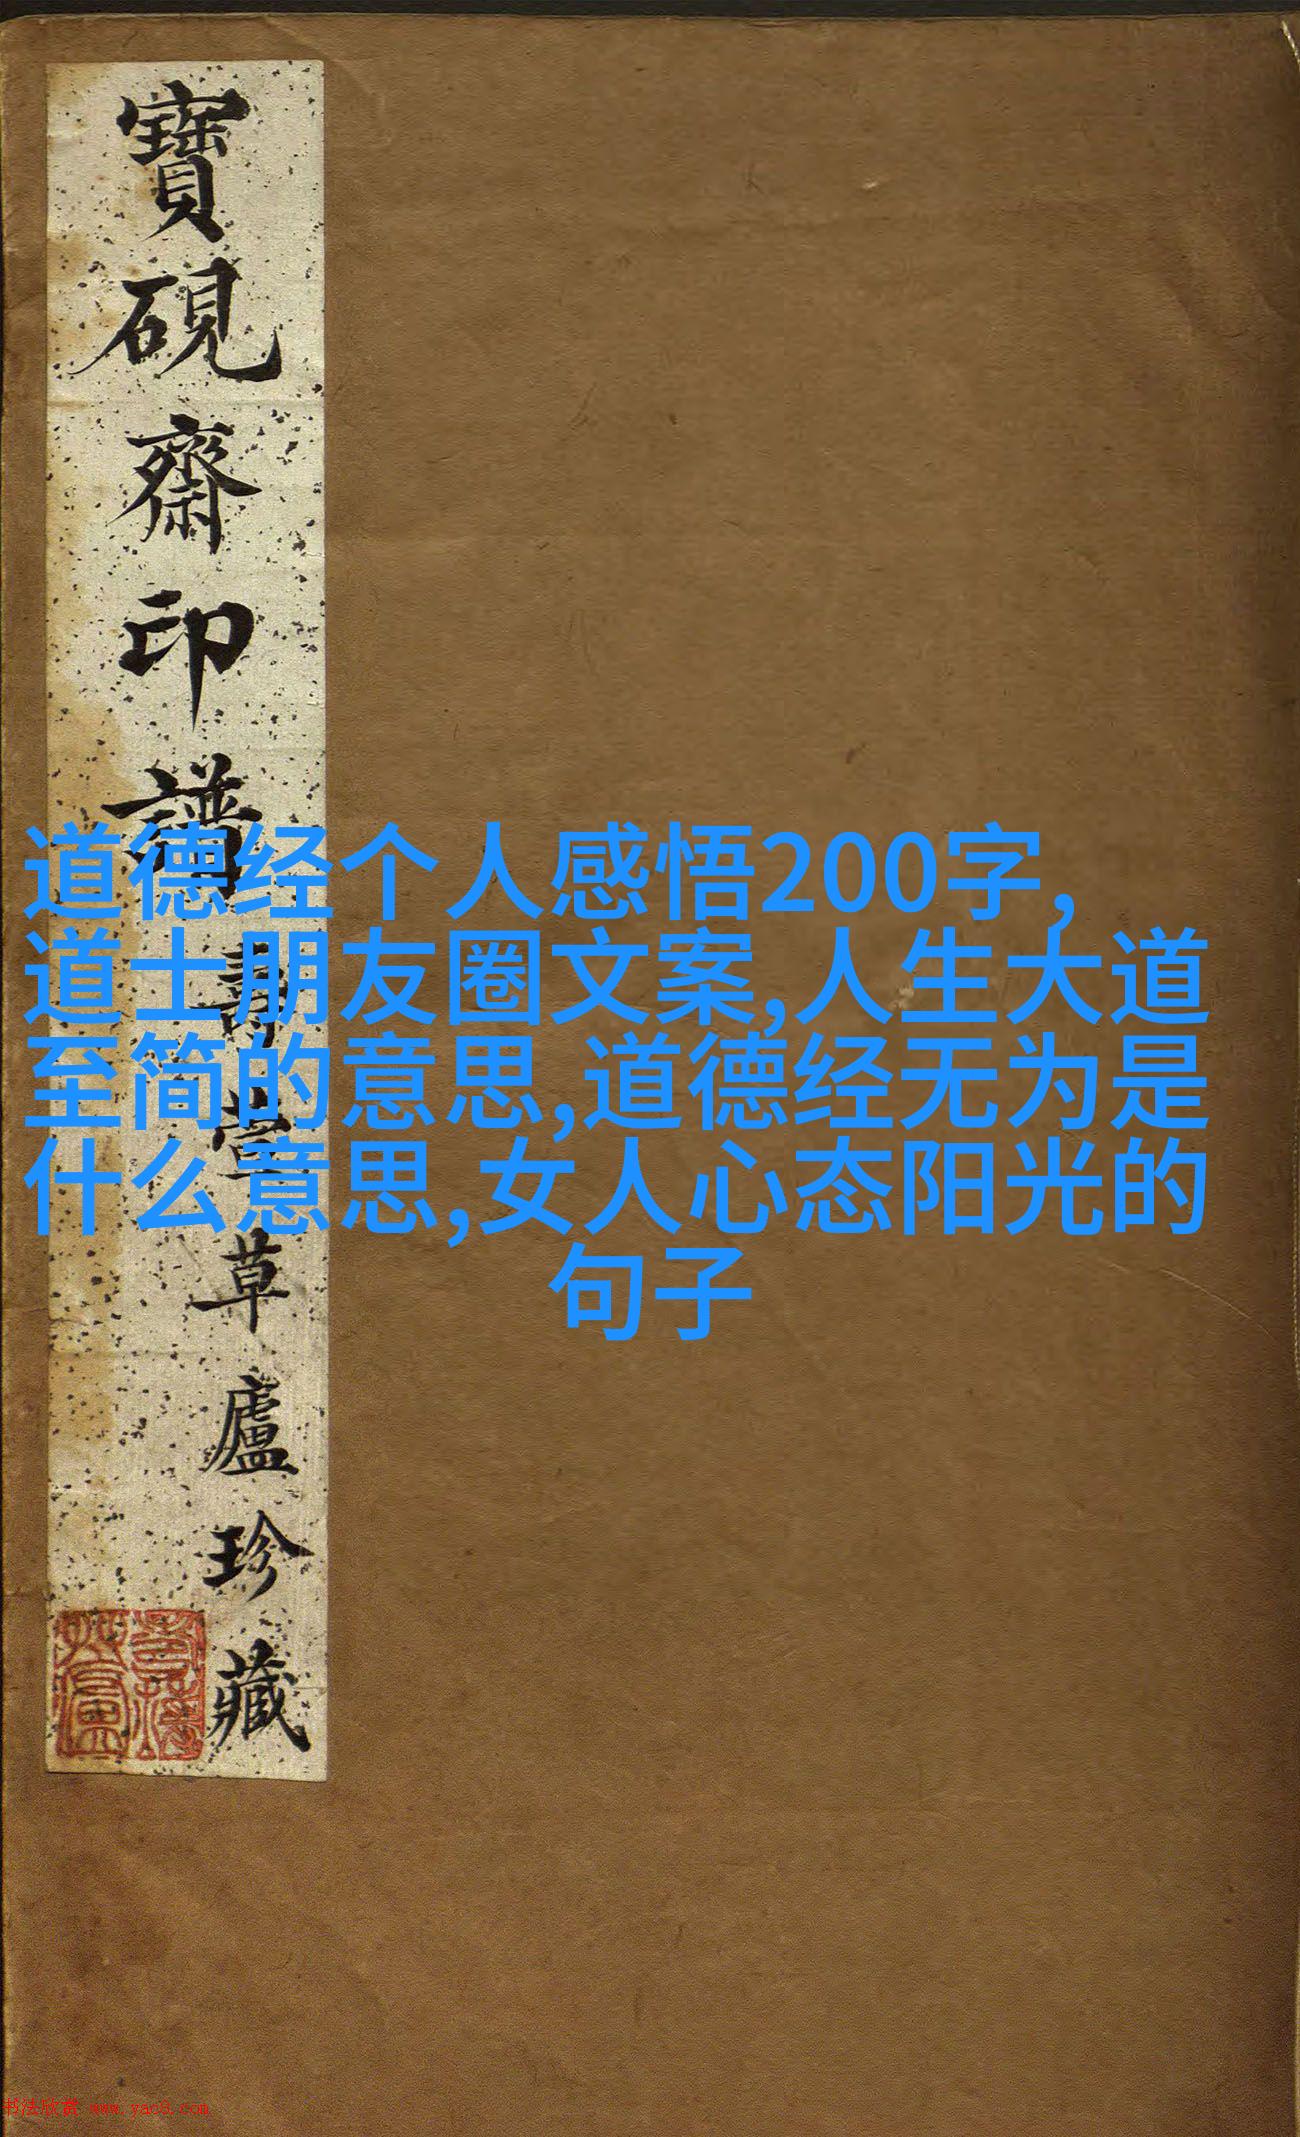 寶硯齋印譜
壽萱草廬珍藏
道德经个人感悟200字,
道士朋友圈文案,人生大道
至简的意思,道德经无为是
什么意思,女人心态阳光的
句子
书法欣赏 www.yac8.com